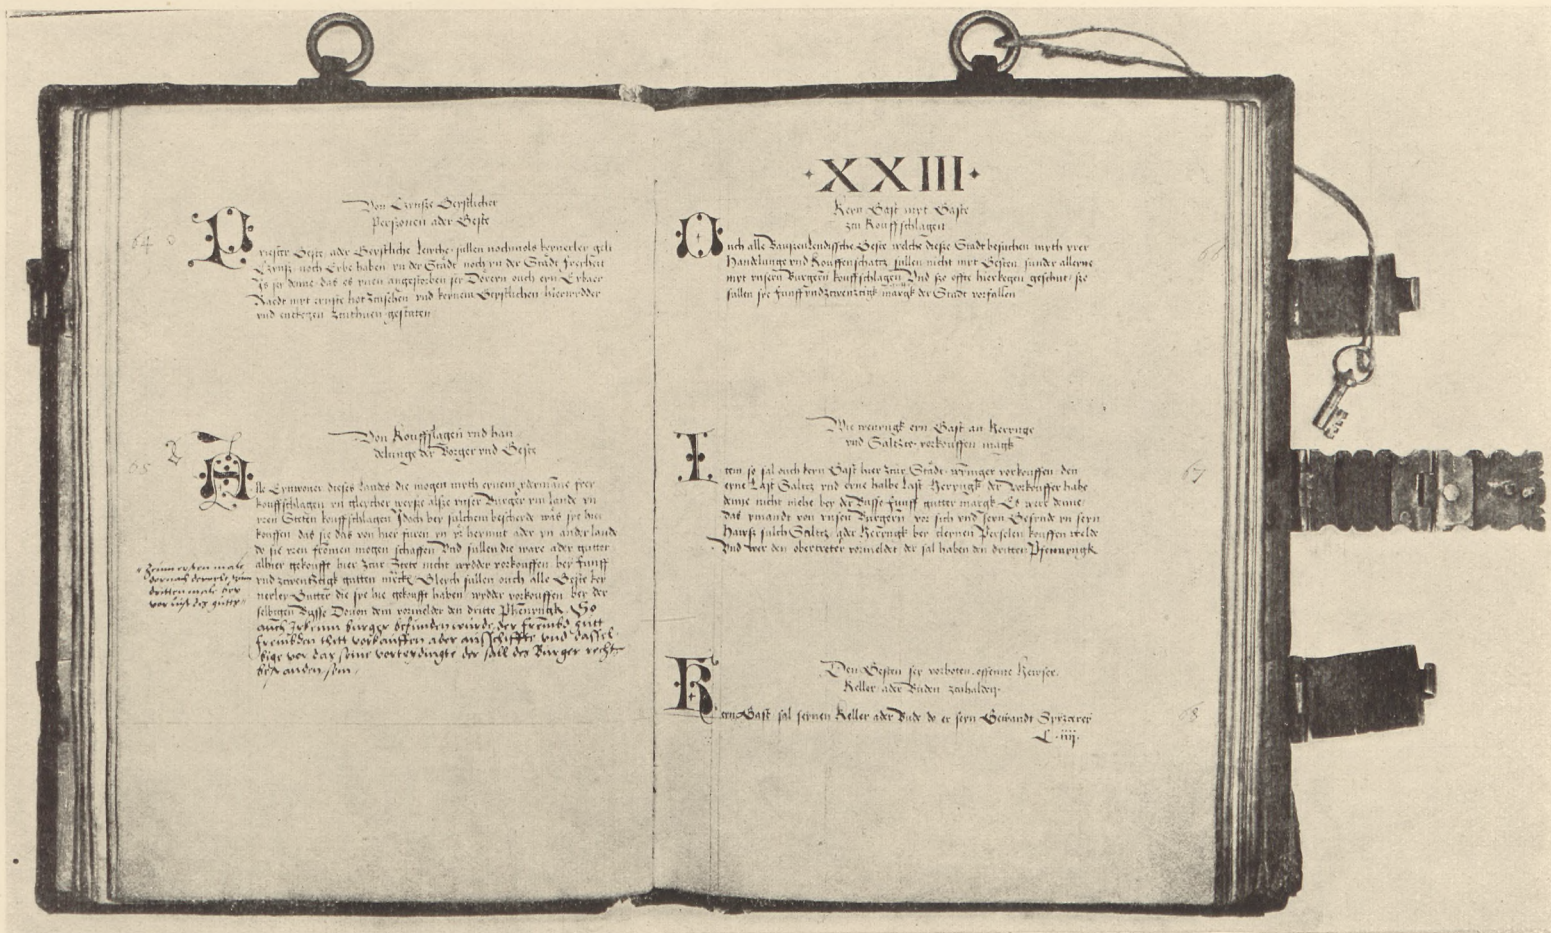 Von Czynße Geystlicher
Personen ader Geste
64
Priester Geste ader Geystliche Lewthe sullen nochmols keynerley gelt
Czynß noch Erbe haben yn der Stadt noch yn der Stadt freyheit
Is sey denne das es ynen angestorben sey Doreyn ouch eyn Erbaer
Raedt myt ernste hot zcusehen vnd keynem Geystlichen hierwydder
vnd entkegen zcuthuen gestaten
Von Kouffslagen vnd han
delunge der Borger vnd Geste
65
Alle Eynwoner dieses Landes die mogen myth eynem ydermanne frey
kouffschlagen yn gleycher weyße alße vnser Burger ym lande yn
den Steten kouffschlagen Idoch bey sulchem bescheyde was sye hier
kouffen das sie das von hier furen yn heymut ader yn ander lande
do sie yren fromen mogen schaffen Vnd sullen die ware ader gutter
alhier gekoufft hier zcur Stete nicht wydder vorkouffen bey funff
vnd zcwentzigk gutten Gleych sullen ouch alle Geste key
nerley Gutter die sye hie gekoufft haben wydder vorkouffen bey der
selbigen Busse Douon dem vormelder den dritte Phennyngk So
auch Irkeinn burger befunden wurde der frembd gutt
frembden thett vorkauffen ader ausschiffte vnd dassel
bige vor das seine vorteydingte der sall des Burger rechts
sein
Zcum ersten male
dornach
dritten male bey
vorlust des gutts
XXIII
Keyn Gast myt Gaste
zcu Kouffschlagen
66
Ouch alle Bawßenlendissche Geste welche dieße Stadt besuchen myth yrer
Handlunge vnd Kouffenschatz sullen nicht myt Gesten sunder alleyne
myt vnsern Burgern kouffschlagen Vnd szo offte hierkegen geschiet szo
sullen sye funffvndzcwenzcigk margk der Stadt vorfallen
Wie wenygk eyn Gast an Herynge
vnd Saltzce vorkouffen magk
67
Item so sal ouch keyn Gast hier zcur Stadt wyniger vorkouffen den
eyne Last Saltz vnd eyne halbe Last Heryngk der vorkouffer habe
denne nicht mehe bey der Busse funff gutter margk Es were denne
das ymandt von vnsern Burgern vor sich vnd seyn Gesynde yn seyn
Hawß sulch Saltz ader Heryngk bey cleynen Perselen kouffen welde
Vnd wer den obertreter vormeldet der sal haben den dritten Pfennyngk
Den Gesten sey vorboten offenne Hewser
Keller ader Buden zcuhalden
68
Keyn Gast sal seynen Keller ader Bude do er seyn Gewandt Spyzcerey
C iiij